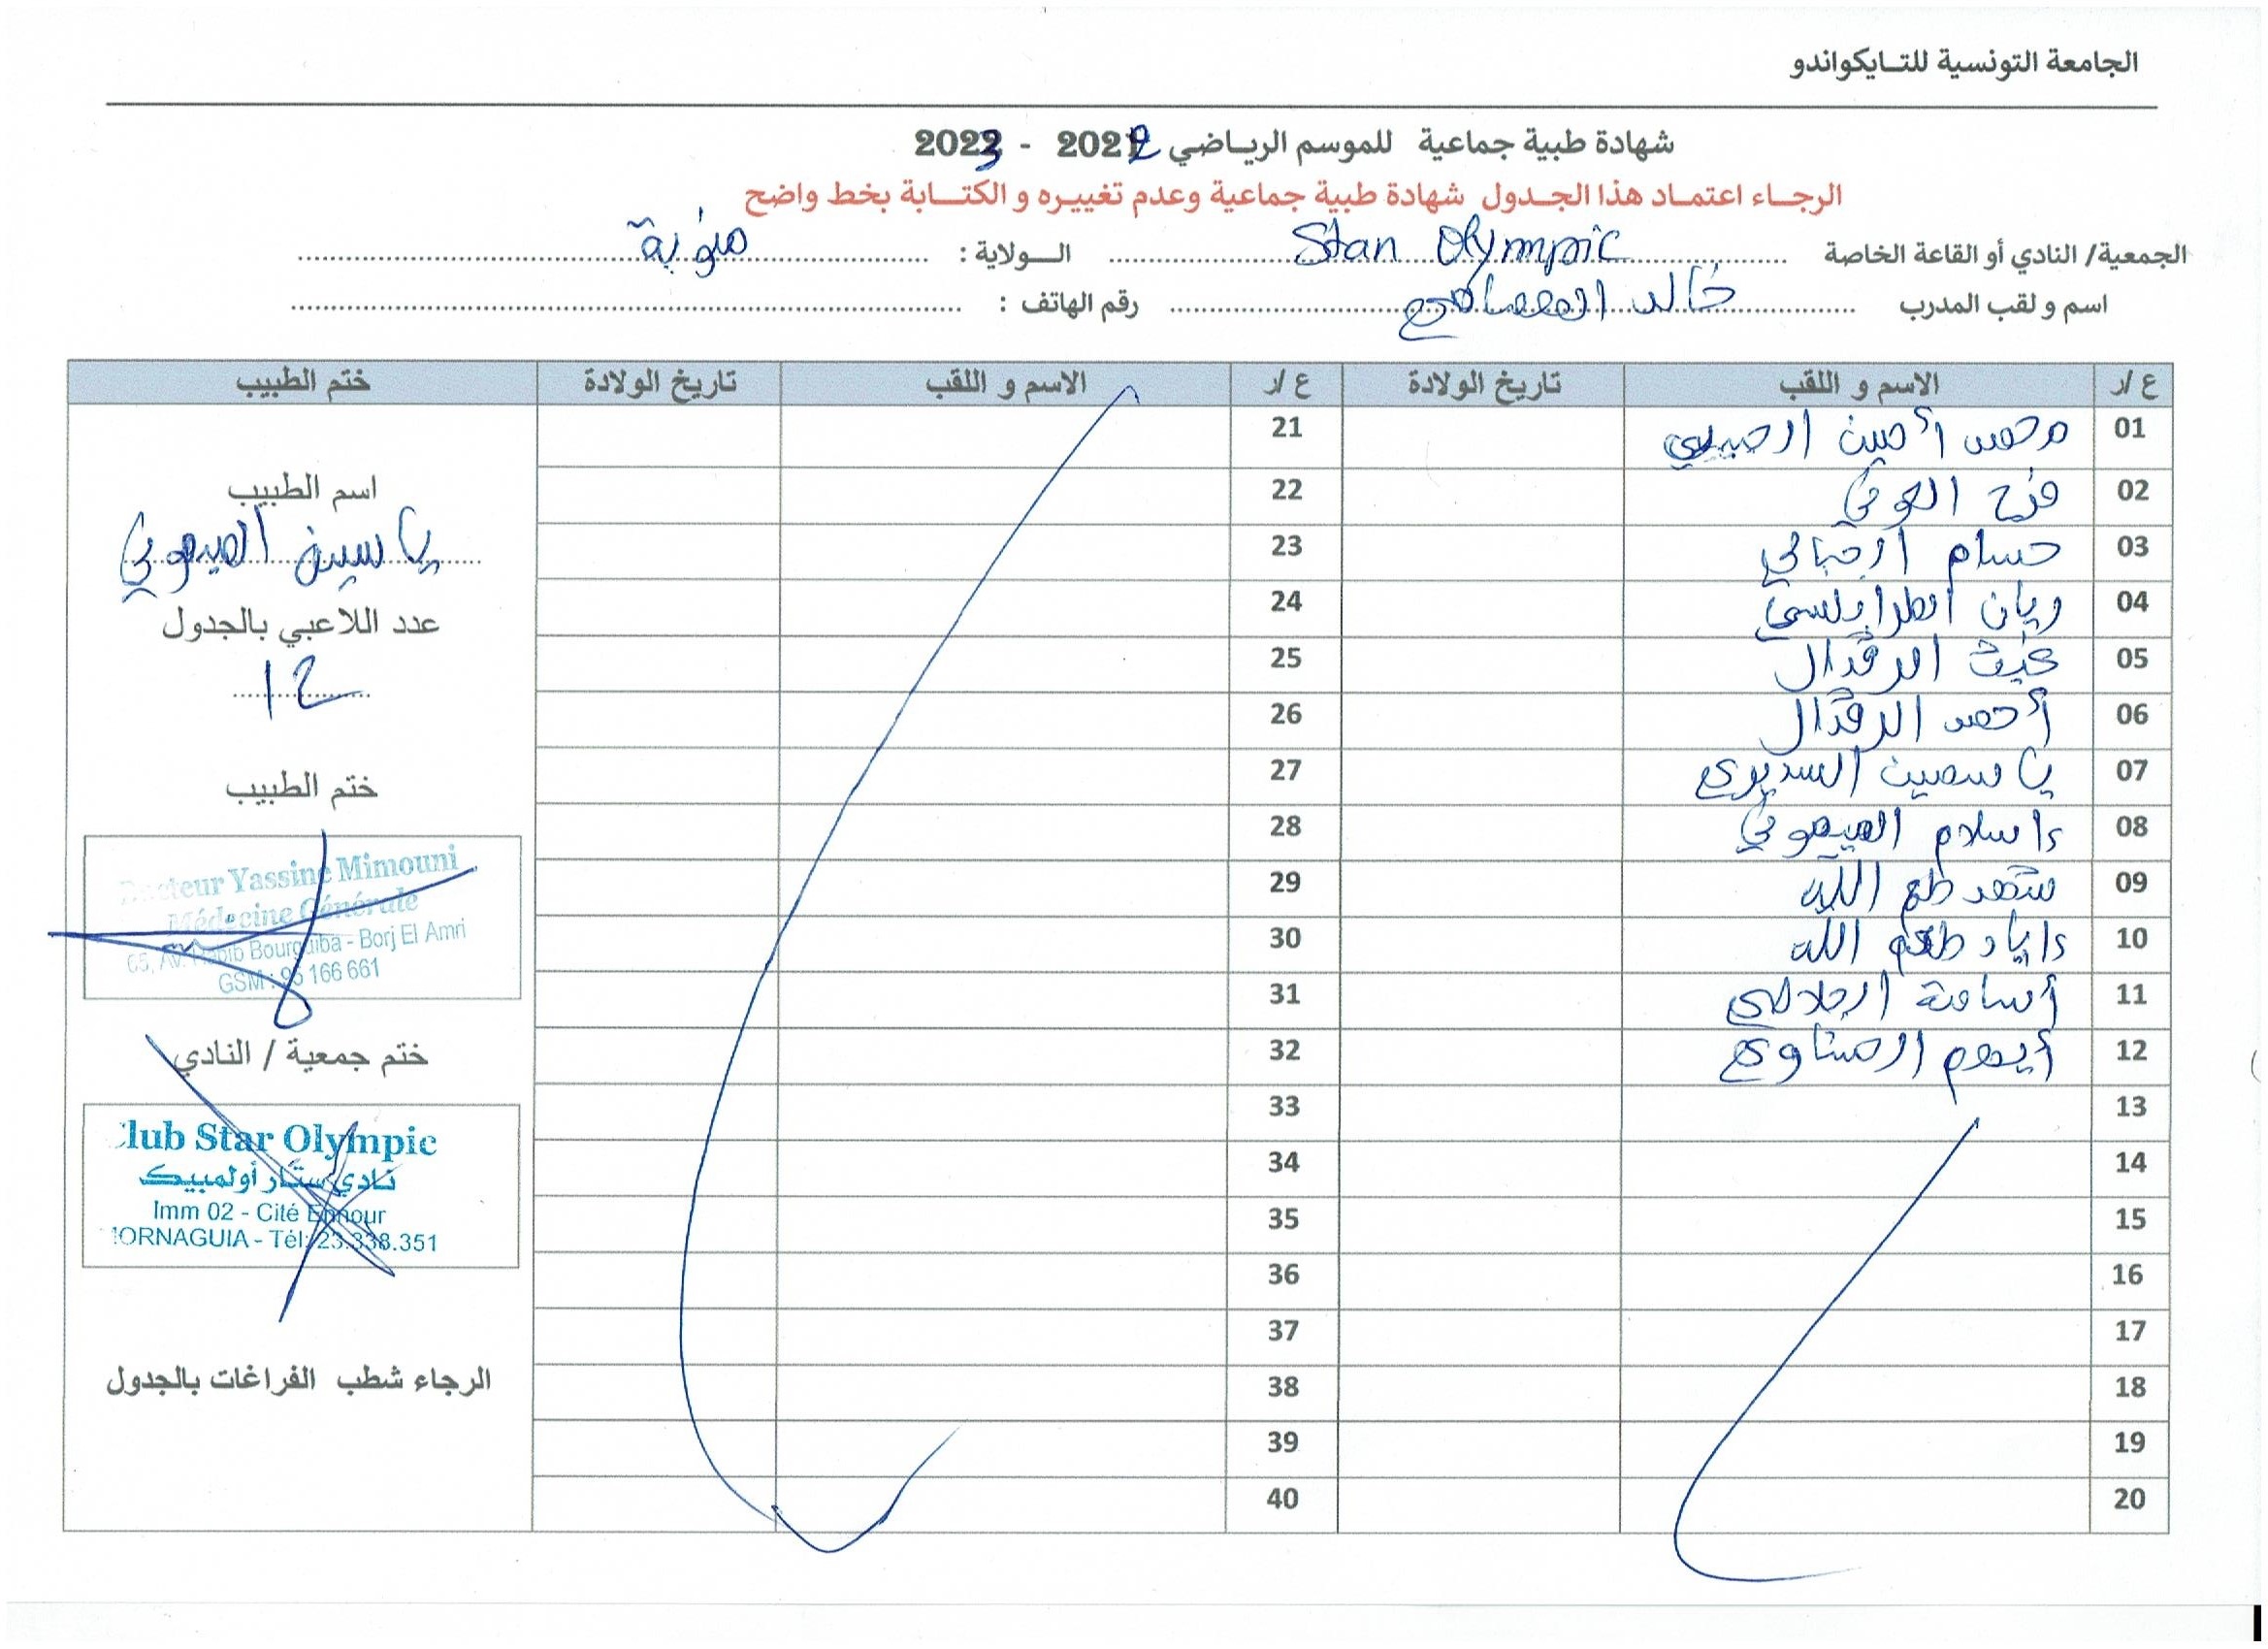 الجامعة التونسية للتايكواندو
شهادة طبية جماعية للموسم الرياضي 2022 - 2023
الرجاء اعتماد هذا الجدول شهادة طبية جماعية وعدم تغييره و الكتابة بخط واضح
الجمعية/ النادي أو القاعة الخاصة Star Olympic الولاية : منوبة
اسم و لقب المدرب خالد رقم الهاتف :
ع /ر الاسم و اللقب تاريخ الولادة ع /ر الاسم و اللقب تاريخ الولادة ختم الطبيب
01 محمد أمين 21
02 فرح العوني 22
03 حسام الجبالي 23
04 ريان الطرابلسي 24
05 غيث الدقدال 25
06 أحمد الدقدال 26
07 ياسمين السديري 27
08 إسلام الميموني 28
09 شهد طعم الله 29
10 إياد طعم الله 30
11 أسامة الجلالي 31
12 أيهم الحناوي 32
13 33
14 34
15 35
16 36
17 37
18 38
19 39
20 40
اسم الطبيب
ياسين الميموني
عدد اللاعبي بالجدول
12
ختم الطبيب
Docteur Yassine Mimouni
Médecine Générale
65, Av. Habib Bourguiba - Borj El Amri
GSM : 95 166 661
ختم جمعية / النادي
Club Star Olympic
نادي ستار أولمبيك
Imm 02 - Cité Ennour
MORNAGUIA - Tél: 23.338.351
الرجاء شطب الفراغات بالجدول